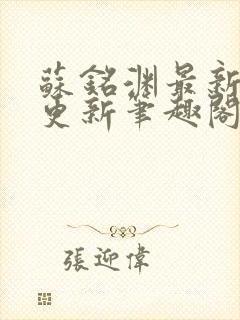 蘇銘渊最新
更新筆趣閣
張迎偉